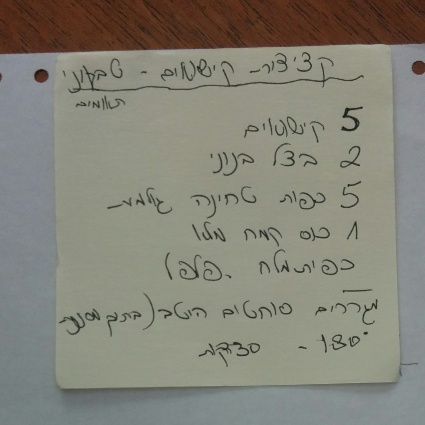 קציצות - קישואים - טבעוני
תאומים
5 קישואים
2 בצל בינוני
5 כפות טחינה גולמית
1 כוס קמח מלא
כפית מלח, פלפל
מגררים סוחטים היטב (בתוך מסננת
180° - 30 דקות